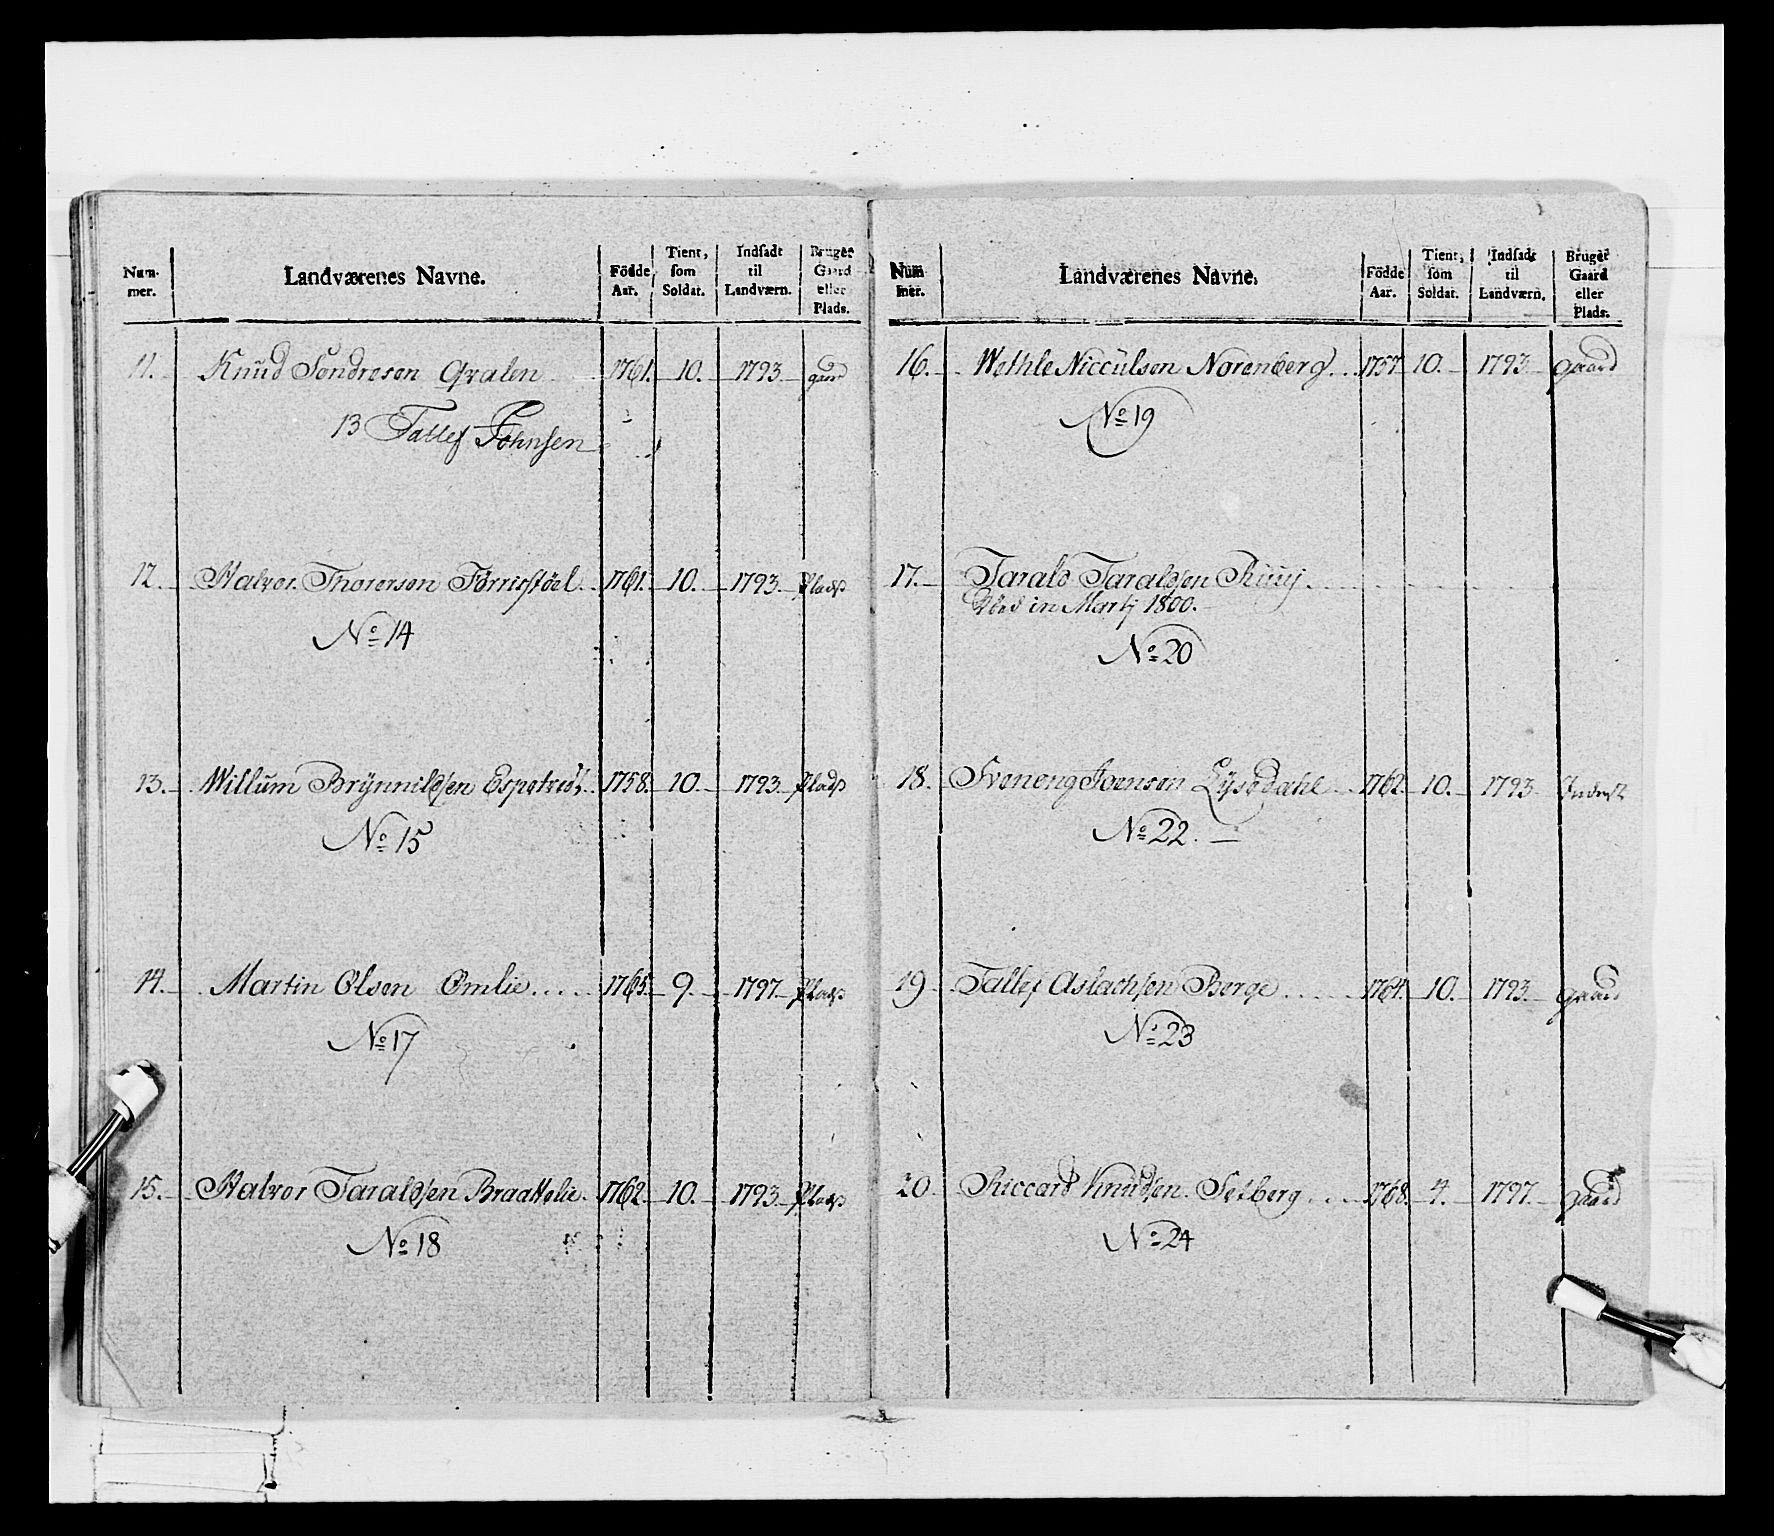 Num- mer. Landværenes Navne. Födde Aar. Tient, som Soldat. Indsadt til Landværn. Bruger Gaard eller Plads.
11. Knud Sondresen Qvalen 1761. 10. 1793. gaard
13 Tallef Johnsen
12. Halvor Thorersen Förrisstöel 1761. 10. 1793. Plads
No 14
13. Willum Brÿnnildsen 1758. 10. 1793. Plads
No 15
14. Martin Olsen Omlie 1765. 9. 1797. Plads
No 17
15. Halvor Taraldsen Braattelie 1762. 10. 1793. Plads
No 18
Num mer. Landværenes Navne. Födde Aar. Tient, som Soldat. Indsadt til Landværn. Bruger Gaard eller Plads.
16. Wethle Niccùlsen Norenberg 1757. 10. 1793. Gaard
No 19
17. Tarald Taraldsen
Död in Martj 1800.
No 20
18. Sveneng Joensen Lÿsedahl 1762. 10. 1793. Inderst
No 22.
19 Tallef Aslachsen Berge 1764. 10. 1793. Gaard
No 23
20 Riccard Knudsen Setberg 1768. 4. 1797. gaard
No 24